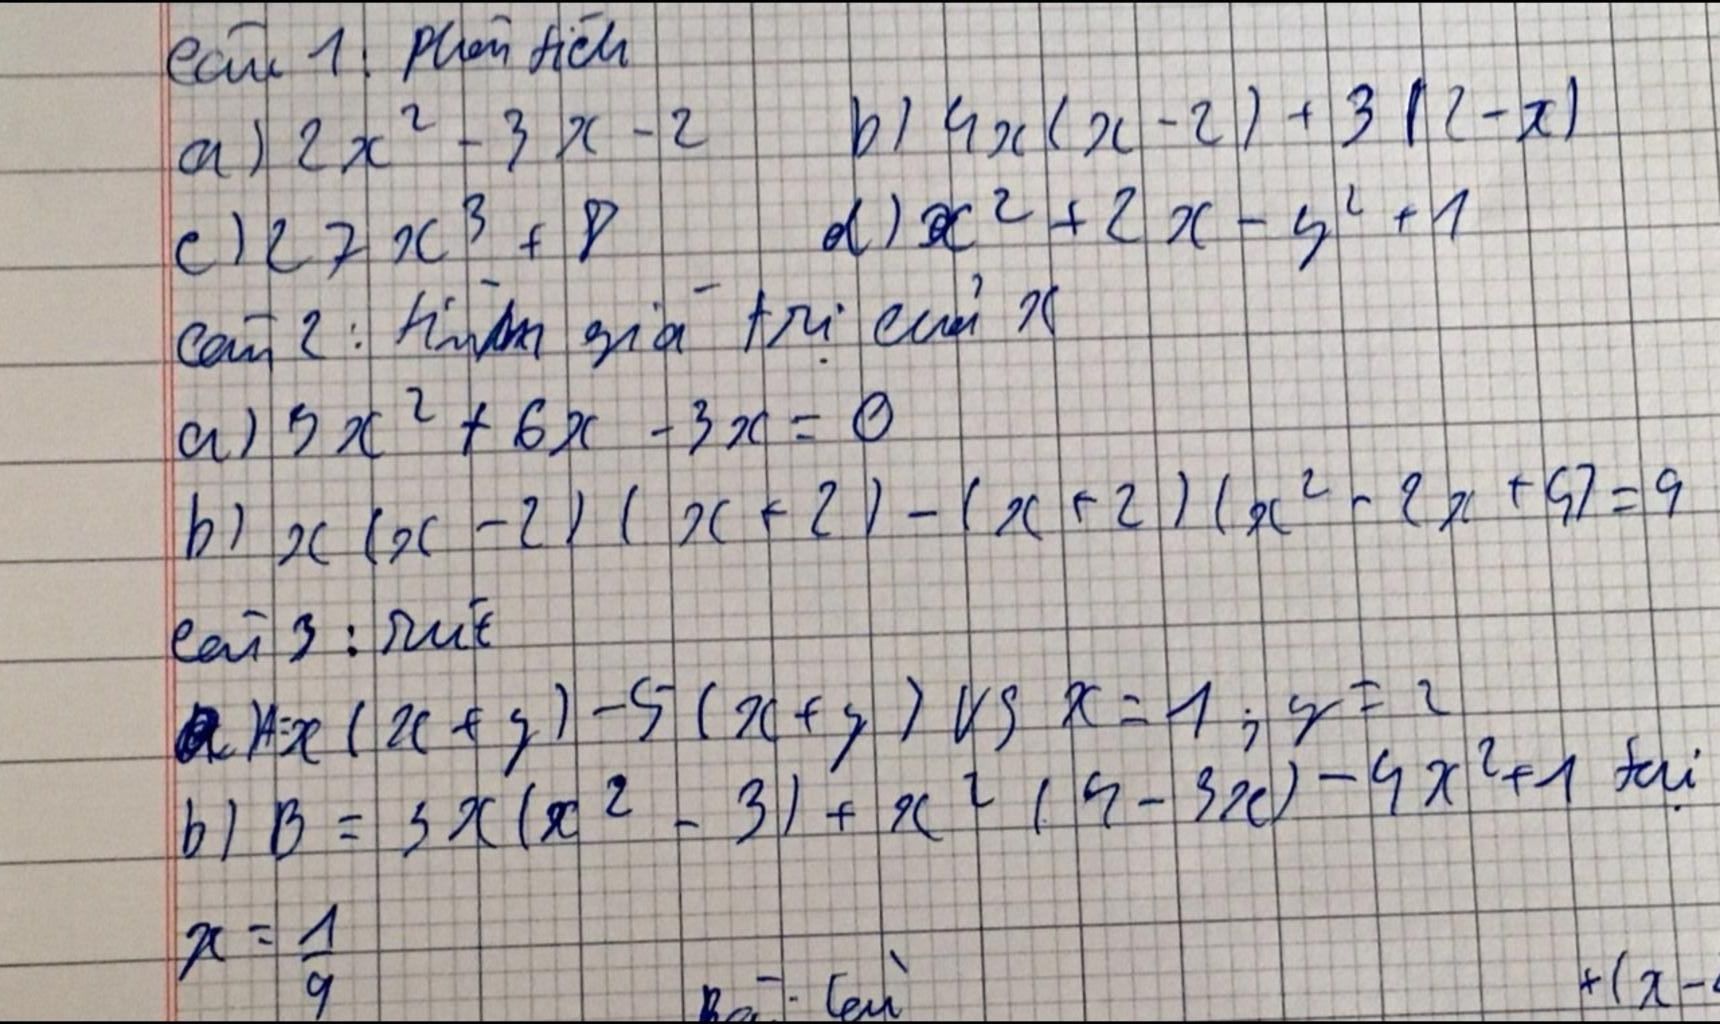 Câu 1: Phân tích
a) 2x² - 3x - 2 b) 4x(x - 2) + 3(2 - x)
c) 27x³ + 8 d) x² + 2x - y² + 1
Câu 2: tìm giá trị của x
a) 3x² + 6x - 3x = 0
b) x(x - 2)(x + 2) - (x + 2)(x² - 2x + 4) = 9
Câu 3: rút
a) A = x(x + y) - 5(x + y) vs x = 1; y = 2
b) B = 3x(x² - 3) + x²(4 - 3x) - 4x² + 1 tại
x = 1/9
+(x -